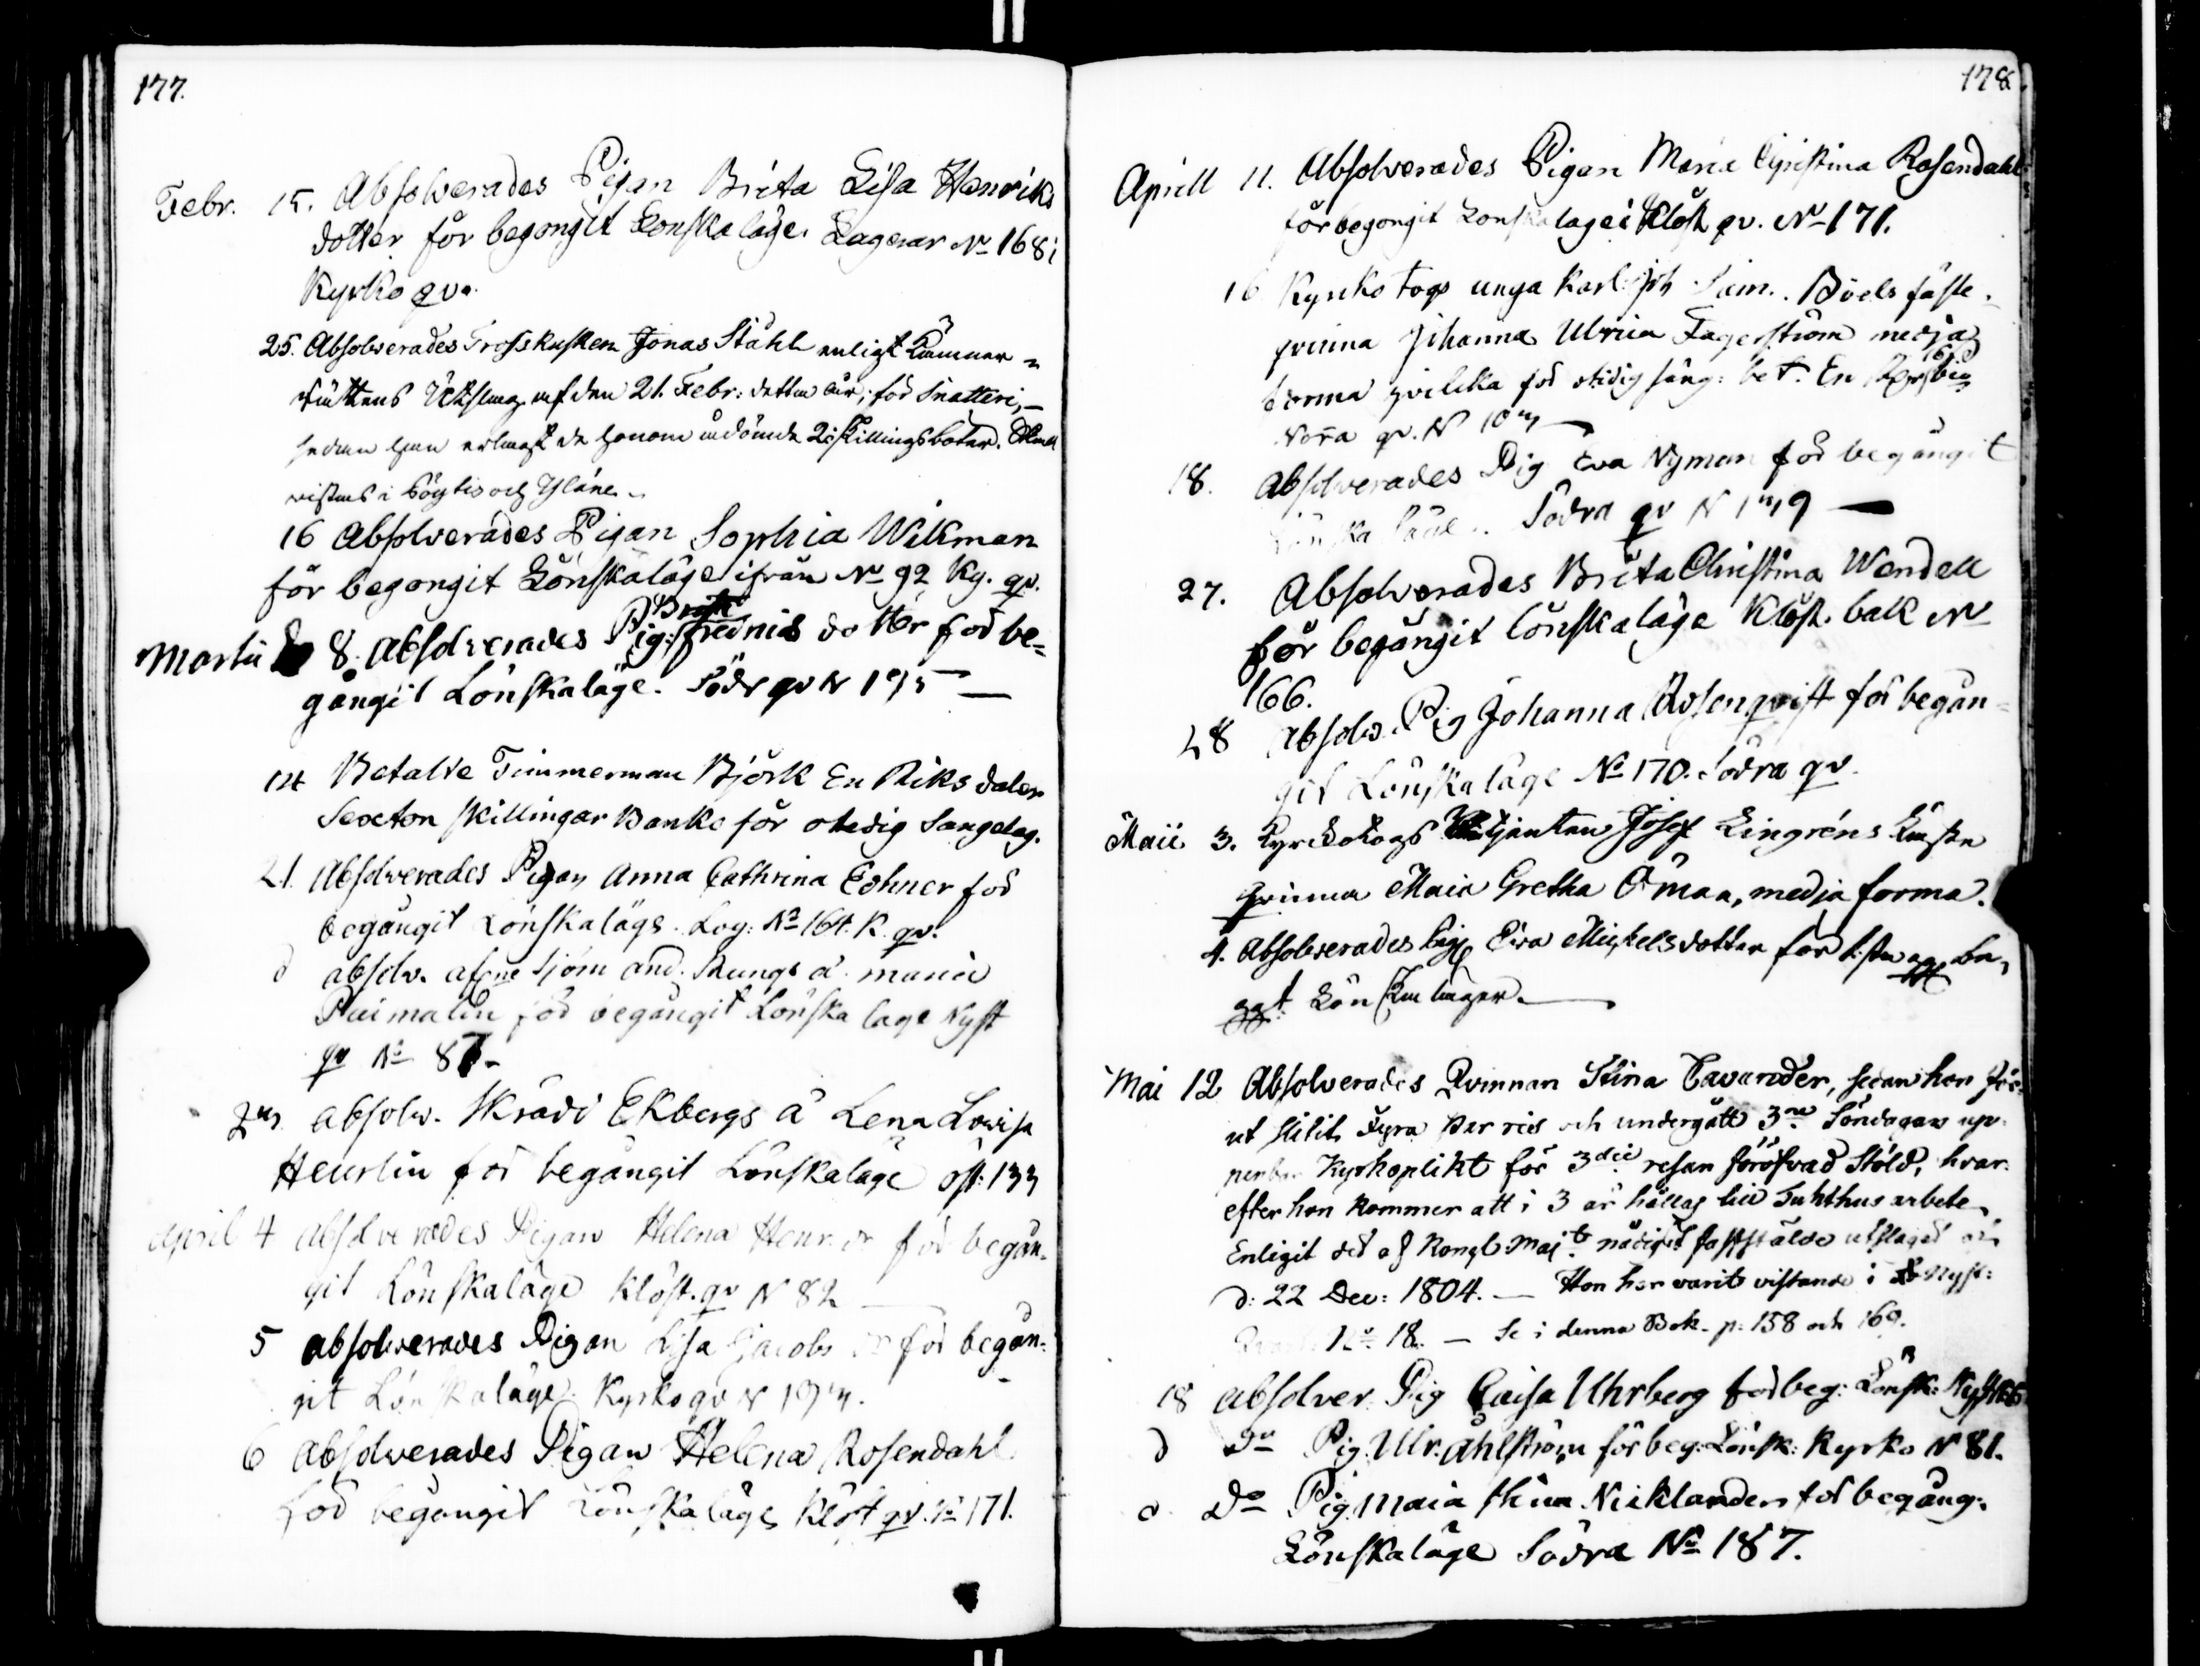 177.
Febr. 15. Absolverades Pigan Brita Lisa Henriks
dotter för begongit Lönskaläge. Lagerar No 168 i
Kyrko qv.
25. Absolverades Trosskusken Jonas Ståhl enligt Kämnars
Rättens Utslag af den 21. Febr: detta år, för Snatteri,
sedan han erlagt de honom ådömde 2 skillings böter.
vistats i Pöytis och Yläne.
16 Absolverades Pigan Sophia Wikman
för begongit Lönskaläge ifrån No 92 Kg. qv.
Martii 8. Absolverades Pig: Brita fredriks dotter för be=
gångit Lönskaläge. Södr qv N 175 —
14 Betalte Timmerman Björk En Riksdaler
Sexton skillingar Banko för otidig Sängelag.
21. Absolverades Pigan Anna Cathrina Echner för
begångit Lönskaläge. Log: No 164. K. qv.
d absolv. afsne Sjöm and. Skungs ä. maria
för begångit Lönska läge Nyst
qv No 87.
27 absolv. Skrädd Ekbergs ä Lena Lovisa
Heurlin för begångit Lönskaläge öst: 133
April 4 absolverades Pigan Helena Henr. dr för begån=
git Lönskaläge Klöst. qv N 82 —
5 absolverades Pigan Lisa Jacobs dr för begån=
git Lönskaläge. Kyrko qv N 177.
6 Absolverades Pigan Helena Rosendahl
för begångit Lönskaläge Klöst qv. No 171.
178.
Aprill 11. Absolverades Pigan Maria Christina Rosendahl
för begongit Lönskaläge i Klöst qv. No 171.
16 Kyrko togs unga Karl: Joh Sim. Böels fäste
qvinna Johanna Ulrica Fagerström medja
forma hvilka för otidig säng: bet. En
Norra qv. N 107 —
18. Absolverades Pig Eva Nyman för begångit
Lönska läge. Södra qv N 179 —
27. Absolverades Brita Christina Wendell
för begångit lönskaläge Klöst. bak No
166.
28 Absolv. Pig Johanna Rosenqvist för begån=
git Lönskaläge No 170. Södra qv.
Maii 3. Kyrckotogs tjenten Josef Lingréns fäste
qvinna Maia Gretha Öman, medja forma.
4. Absolverades Pig Eva Mickelsdotter för
Lönskaläger. —
Mai 12 Absolverades Qvinnan Stina Cavander, sedan hon för=
ut slitit Fyra Par ris och undergått 3ne Söndagar up=
penbar Kyrkoplikt för 3die resan föröfvad Stöld, hvar=
efter hon kommer att i 3 år hållas till Tukthus arbete
Enligit det af Kongl. Majts nådigst fastställde utslaget af
d: 22 Dec: 1804. — Hon har varit vistande i Nyst:
No 18. — Se i denna Bok. p: 158 och 169.
18 absolver. Pig Caisa Uhrberg för beg: Lönsk: Nyst
d Do Pig. Ulr: Åhlström för beg: Lönsk: Kyrko N 81.
d. Do Pig. Maia Stina Nicklander för begång:
Lönskaläge Södra No 187.